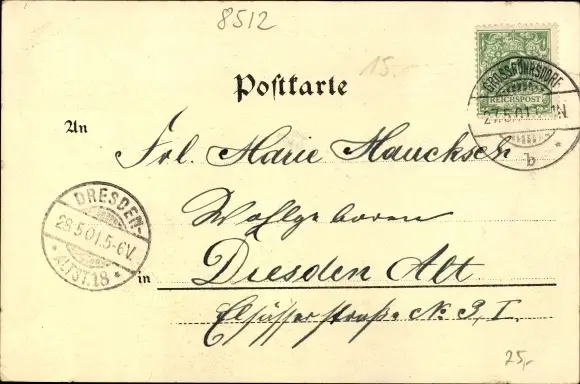 8512
15,-
Postkarte
5
REICHSPOST
GROSSRÖHRSDORF
27.5.01 N
b
An
Frl. Marie Maucksch
Wohlgeboren
DRESDEN-
28.5.01.5-6V.
* ALTST.18 *
in Dresden Alt
Elsässerstraße No 9, I.
25,-